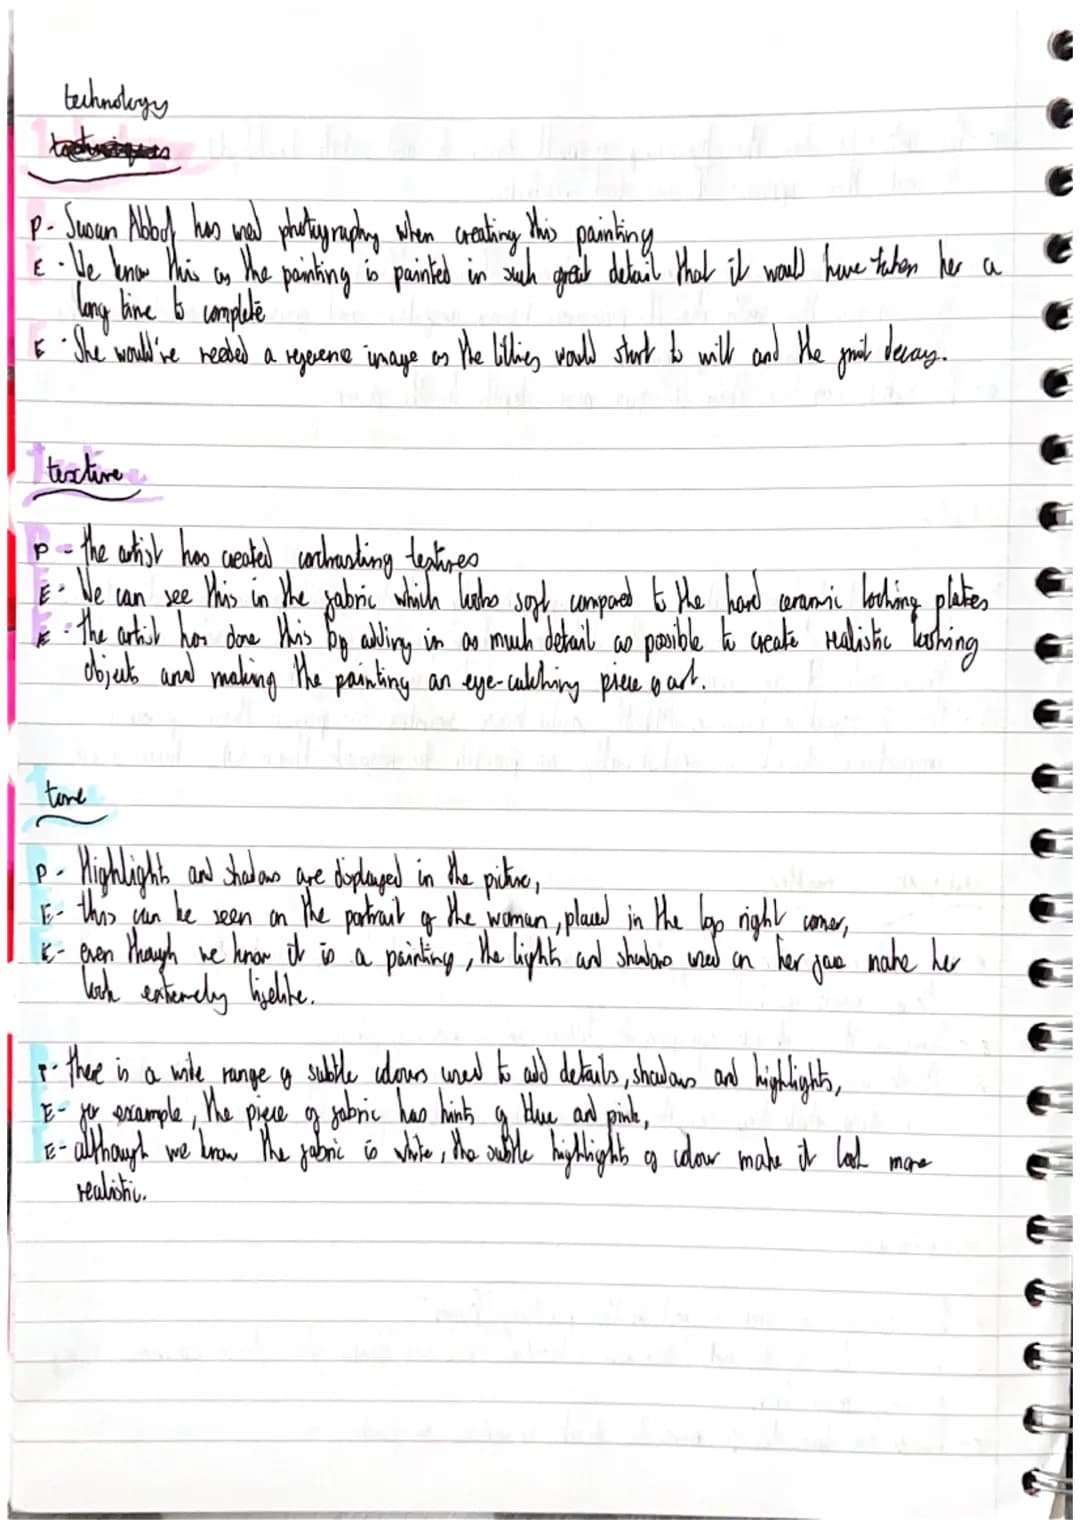 technology
P- Susan Abbot has used photography when creating this painting
E- We know this as the painting is painted in such great detail that it would have taken her a
long time to complete
E- She would've needed a reference image as the lillies would start to wilt and the fruit decay.
texture
P- the artist has created contrasting textures
E- We can see this in the fabric which looks soft compared to the hard ceramic looking plates
E- the artist has done this by adding in as much detail as possible to create realistic looking
objects and making the painting an eye-catching piece of art.
tone
P- Highlights and shadows are displayed in the picture,
E- this can be seen on the portrait of the woman, placed in the top right corner,
E- even though we know it is a painting, the lights and shadows used on her face make her
look extremely lifelike.
P- there is a wide range of subtle colours used to add details, shadows and highlights,
E- for example, the piece of fabric has hints of blue and pink,
E- although we know the fabric is white, the subtle highlights of colour make it look more
realistic.